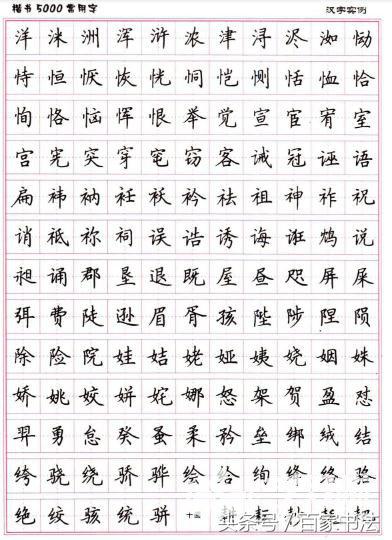 楷书5000常用字 汉字实例
洋洣洲浑浒浓津浔浕洳恸
恃恒恹恢恍恫恺恻恬恤恰
恂恪恼恽恨举觉宣宦宥室
宫宪突穿窀窃客诫冠诬语
扁袆衲衽袄衿袪祖神祚祝
诮祗祢祠误诰诱诲诳鸩说
昶诵郡垦退既屋昼咫屏屎
弭费陡逊眉胥孩陛陟陧陨
除险院娃姞姥娅姨娆姻姝
娇姚姣姘姹娜怒架贺盈怼
羿勇怠癸蚤柔矜垒绑绒结
绔骁绕骄骅绘给绚绛络骆
绝绞骇统骈十画耕耘
头条号/百家书法